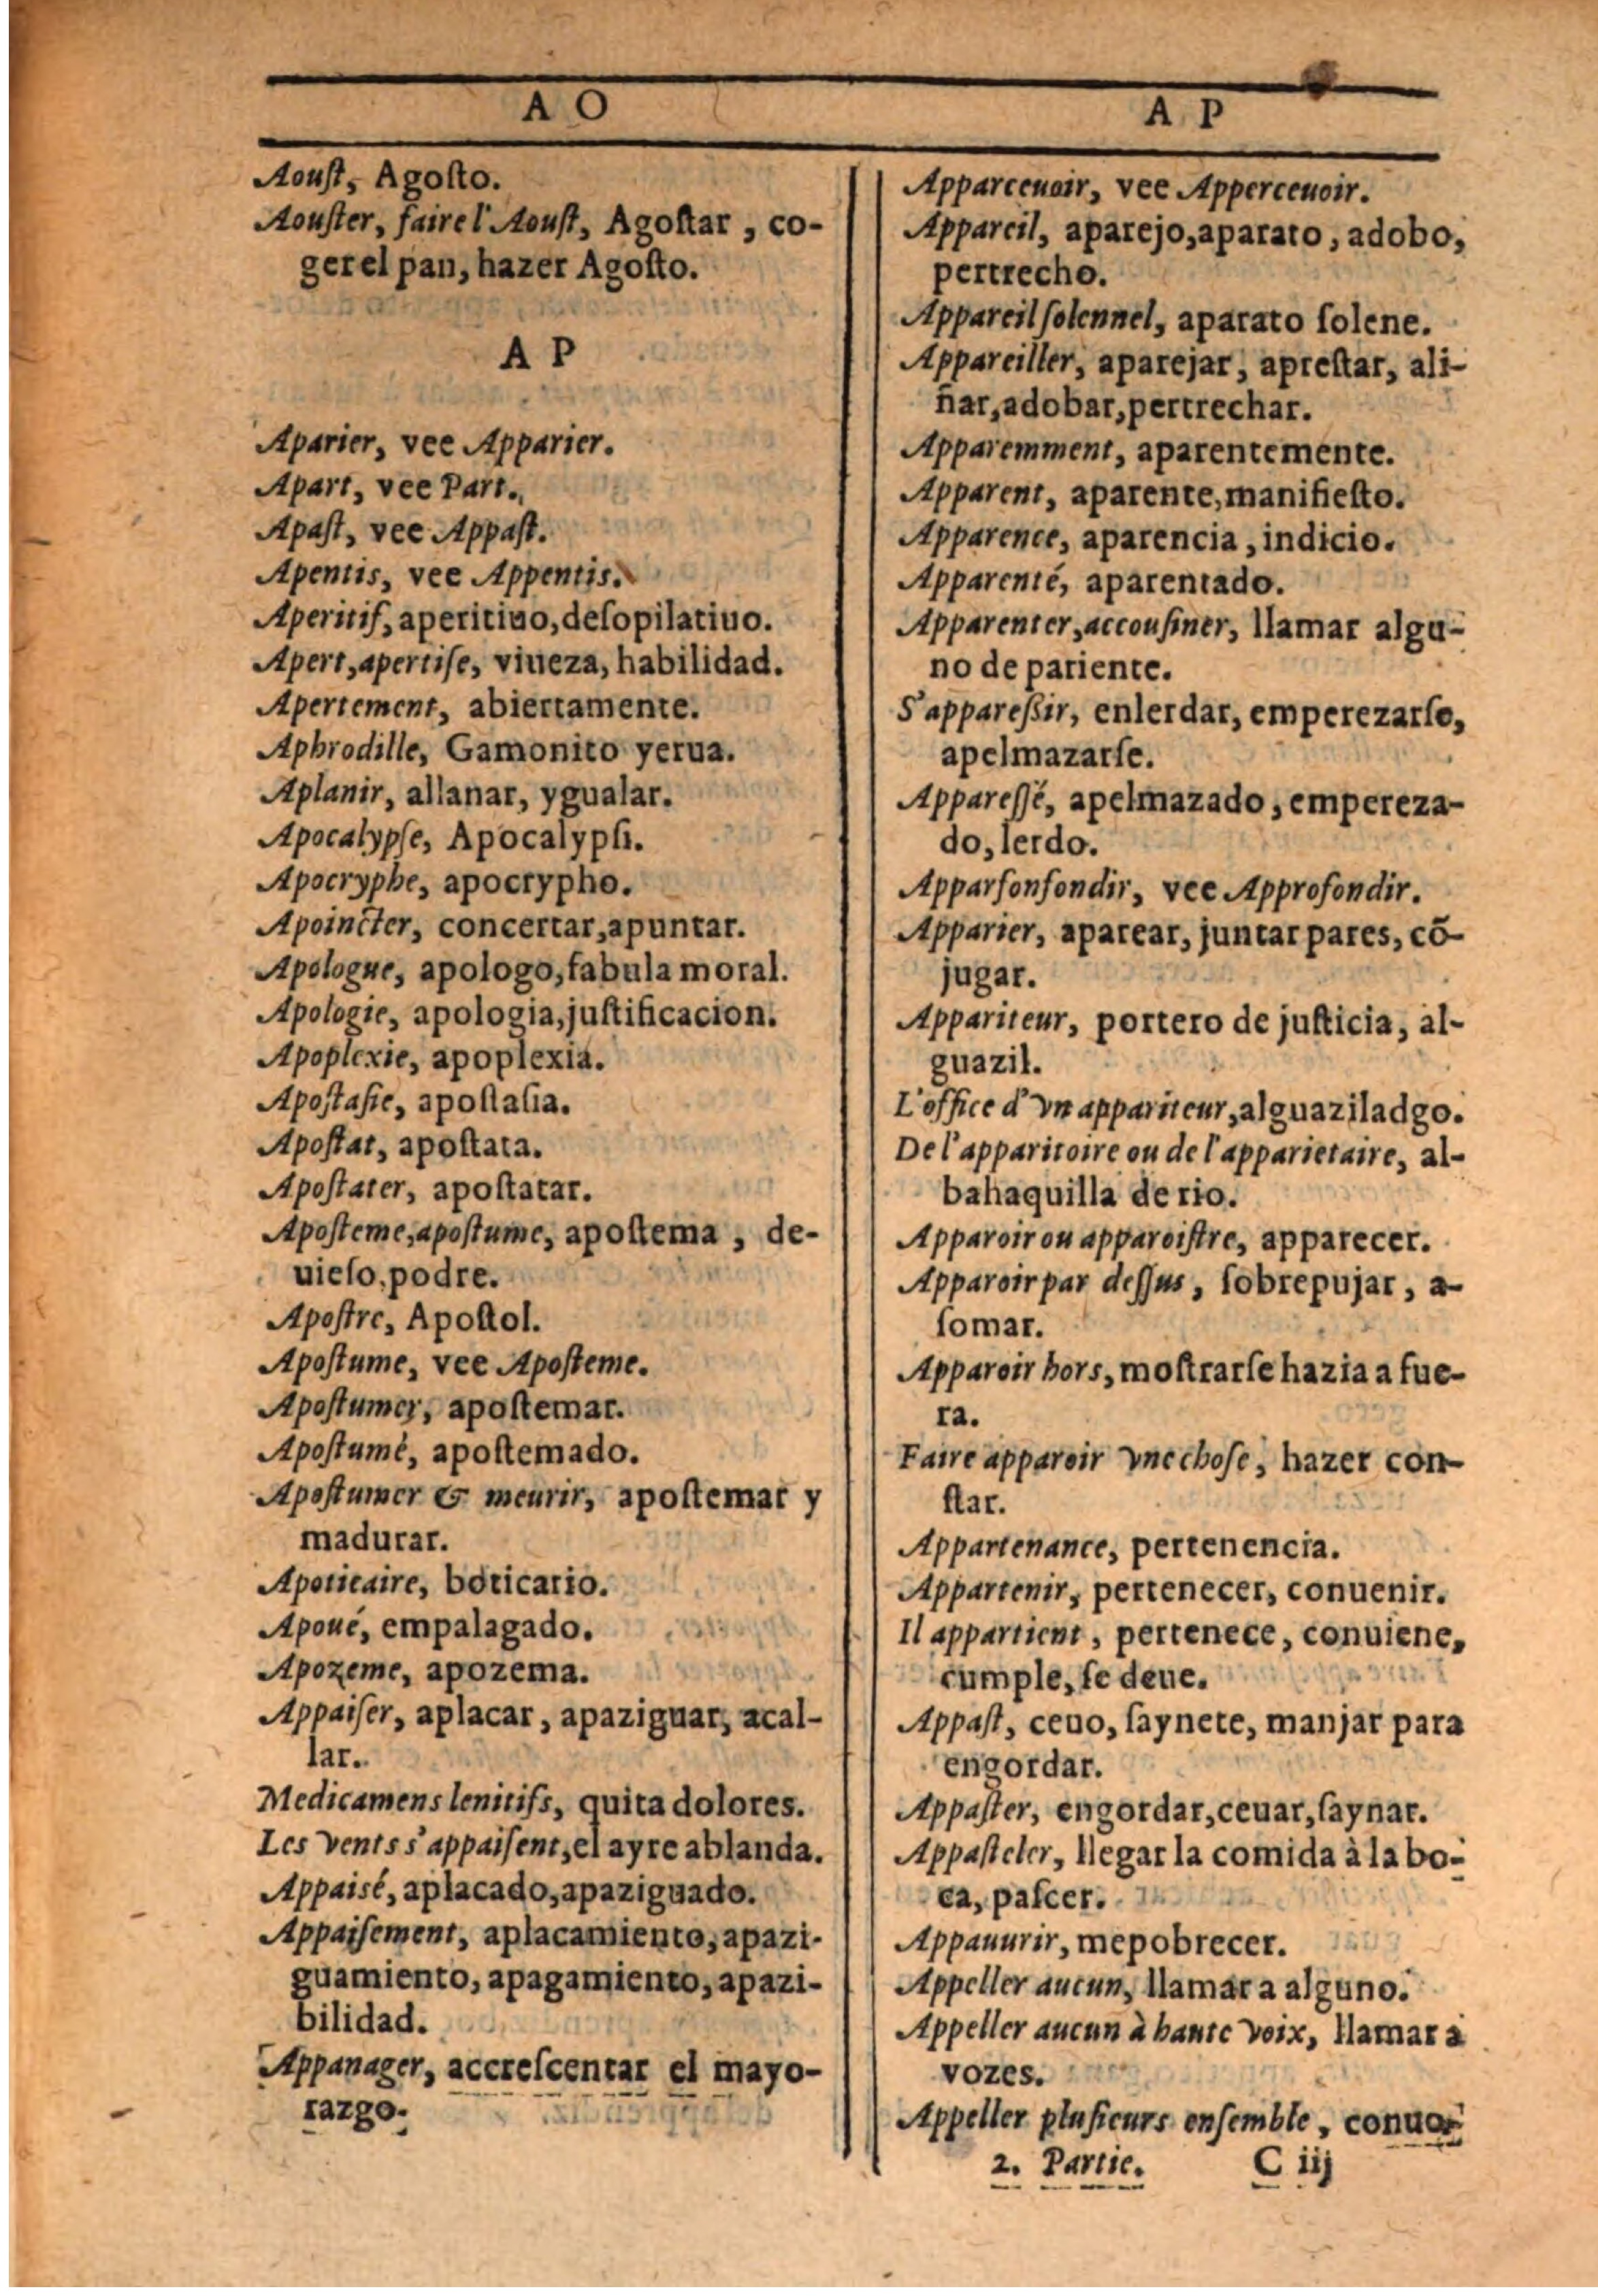 A O
Aouſt, Agoſto.
Aouſter, faire l'Aouſt, Agoſtar, co-
ger el pan, hazer Agoſto.
A P
Aparier, vee Apparier.
Apart, vee Part.
Apaſt, vee Appaſt.
Apentis, vee Appentis.
Aperitif, aperitiuo, deſopilatiuo.
Apert, apertiſe, viueza, habilidad.
Apertement, abiertamente.
Aphrodille, Gamonito yerua.
Aplanir, allanar, ygualar.
Apocalypſe, Apocalypſi.
Apocryphe, apocrypho.
Apoincter, concertar, apuntar.
Apologue, apologo, fabula moral.
Apologie, apologia, juſtificacion.
Apoplexie, apoplexia.
Apoſtaſie, apoſtaſia.
Apoſtat, apoſtata.
Apoſtater, apoſtatar.
Apoſteme, apoſtume, apoſtema, de-
uieſo, podre.
Apoſtre, Apoſtol.
Apoſtume, vee Apoſteme.
Apoſtumer, apoſtemar.
Apoſtumé, apoſtemado.
Apoſtumer & meurir, apoſtemar y
madurar.
Apoticaire, boticario.
Apoué, empalagado.
Apozeme, apozema.
Appaiſer, aplacar, apaziguar, acal-
lar.
Medicamens lenitifs, quita dolores.
Les vents s'appaiſent, el ayre ablanda.
Appaisé, aplacado, apaziguado.
Appaiſement, aplacamiento, apazi-
guamiento, apagamiento, apazi-
bilidad.
Appanager, accreſcentar el mayo-
razgo.
A P
Apparceuoir, vee Apperceuoir.
Appareil, aparejo, aparato, adobo,
pertrecho.
Appareil ſolennel, aparato ſolene.
Appareiller, aparejar, apreſtar, ali-
ñar, adobar, pertrechar.
Apparemment, aparentemente.
Apparent, aparente, manifieſto.
Apparence, aparencia, indicio.
Apparenté, aparentado.
Apparenter, accouſiner, llamar algu-
no de pariente.
S'appareſsir, enlerdar, emperezarſe,
apelmazarſe.
Appareſſé, apelmazado, empereza-
do, lerdo.
Apparfonfondir, vee Approfondir.
Apparier, aparear, juntar pares, cō-
jugar.
Appariteur, portero de juſticia, al-
guazil.
L'office d'vn appariteur, alguaziladgo.
De l'apparitoire ou de l'apparietaire, al-
bahaquilla de rio.
Apparoir ou apparoiſtre, apparecer.
Apparoir par deſſus, ſobrepujar, a-
ſomar.
Apparoir hors, moſtrarſe hazia a fue-
ra.
Faire apparoir vne choſe, hazer con-
ſtar.
Appartenance, pertenencia.
Appartenir, pertenecer, conuenir.
Il appartient, pertenece, conuiene,
cumple, ſe deue.
Appaſt, ceuo, ſaynete, manjar para
engordar.
Appaſter, engordar, ceuar, ſaynar.
Appaſteler, llegar la comida à la bo-
ca, paſcer.
Appauurir, mepobrecer.
Appeller aucun, llamar a alguno.
Appeller aucun à haute voix, llamar a
vozes.
Appeller pluſieurs enſemble, conuo-
2. Partie. C iij